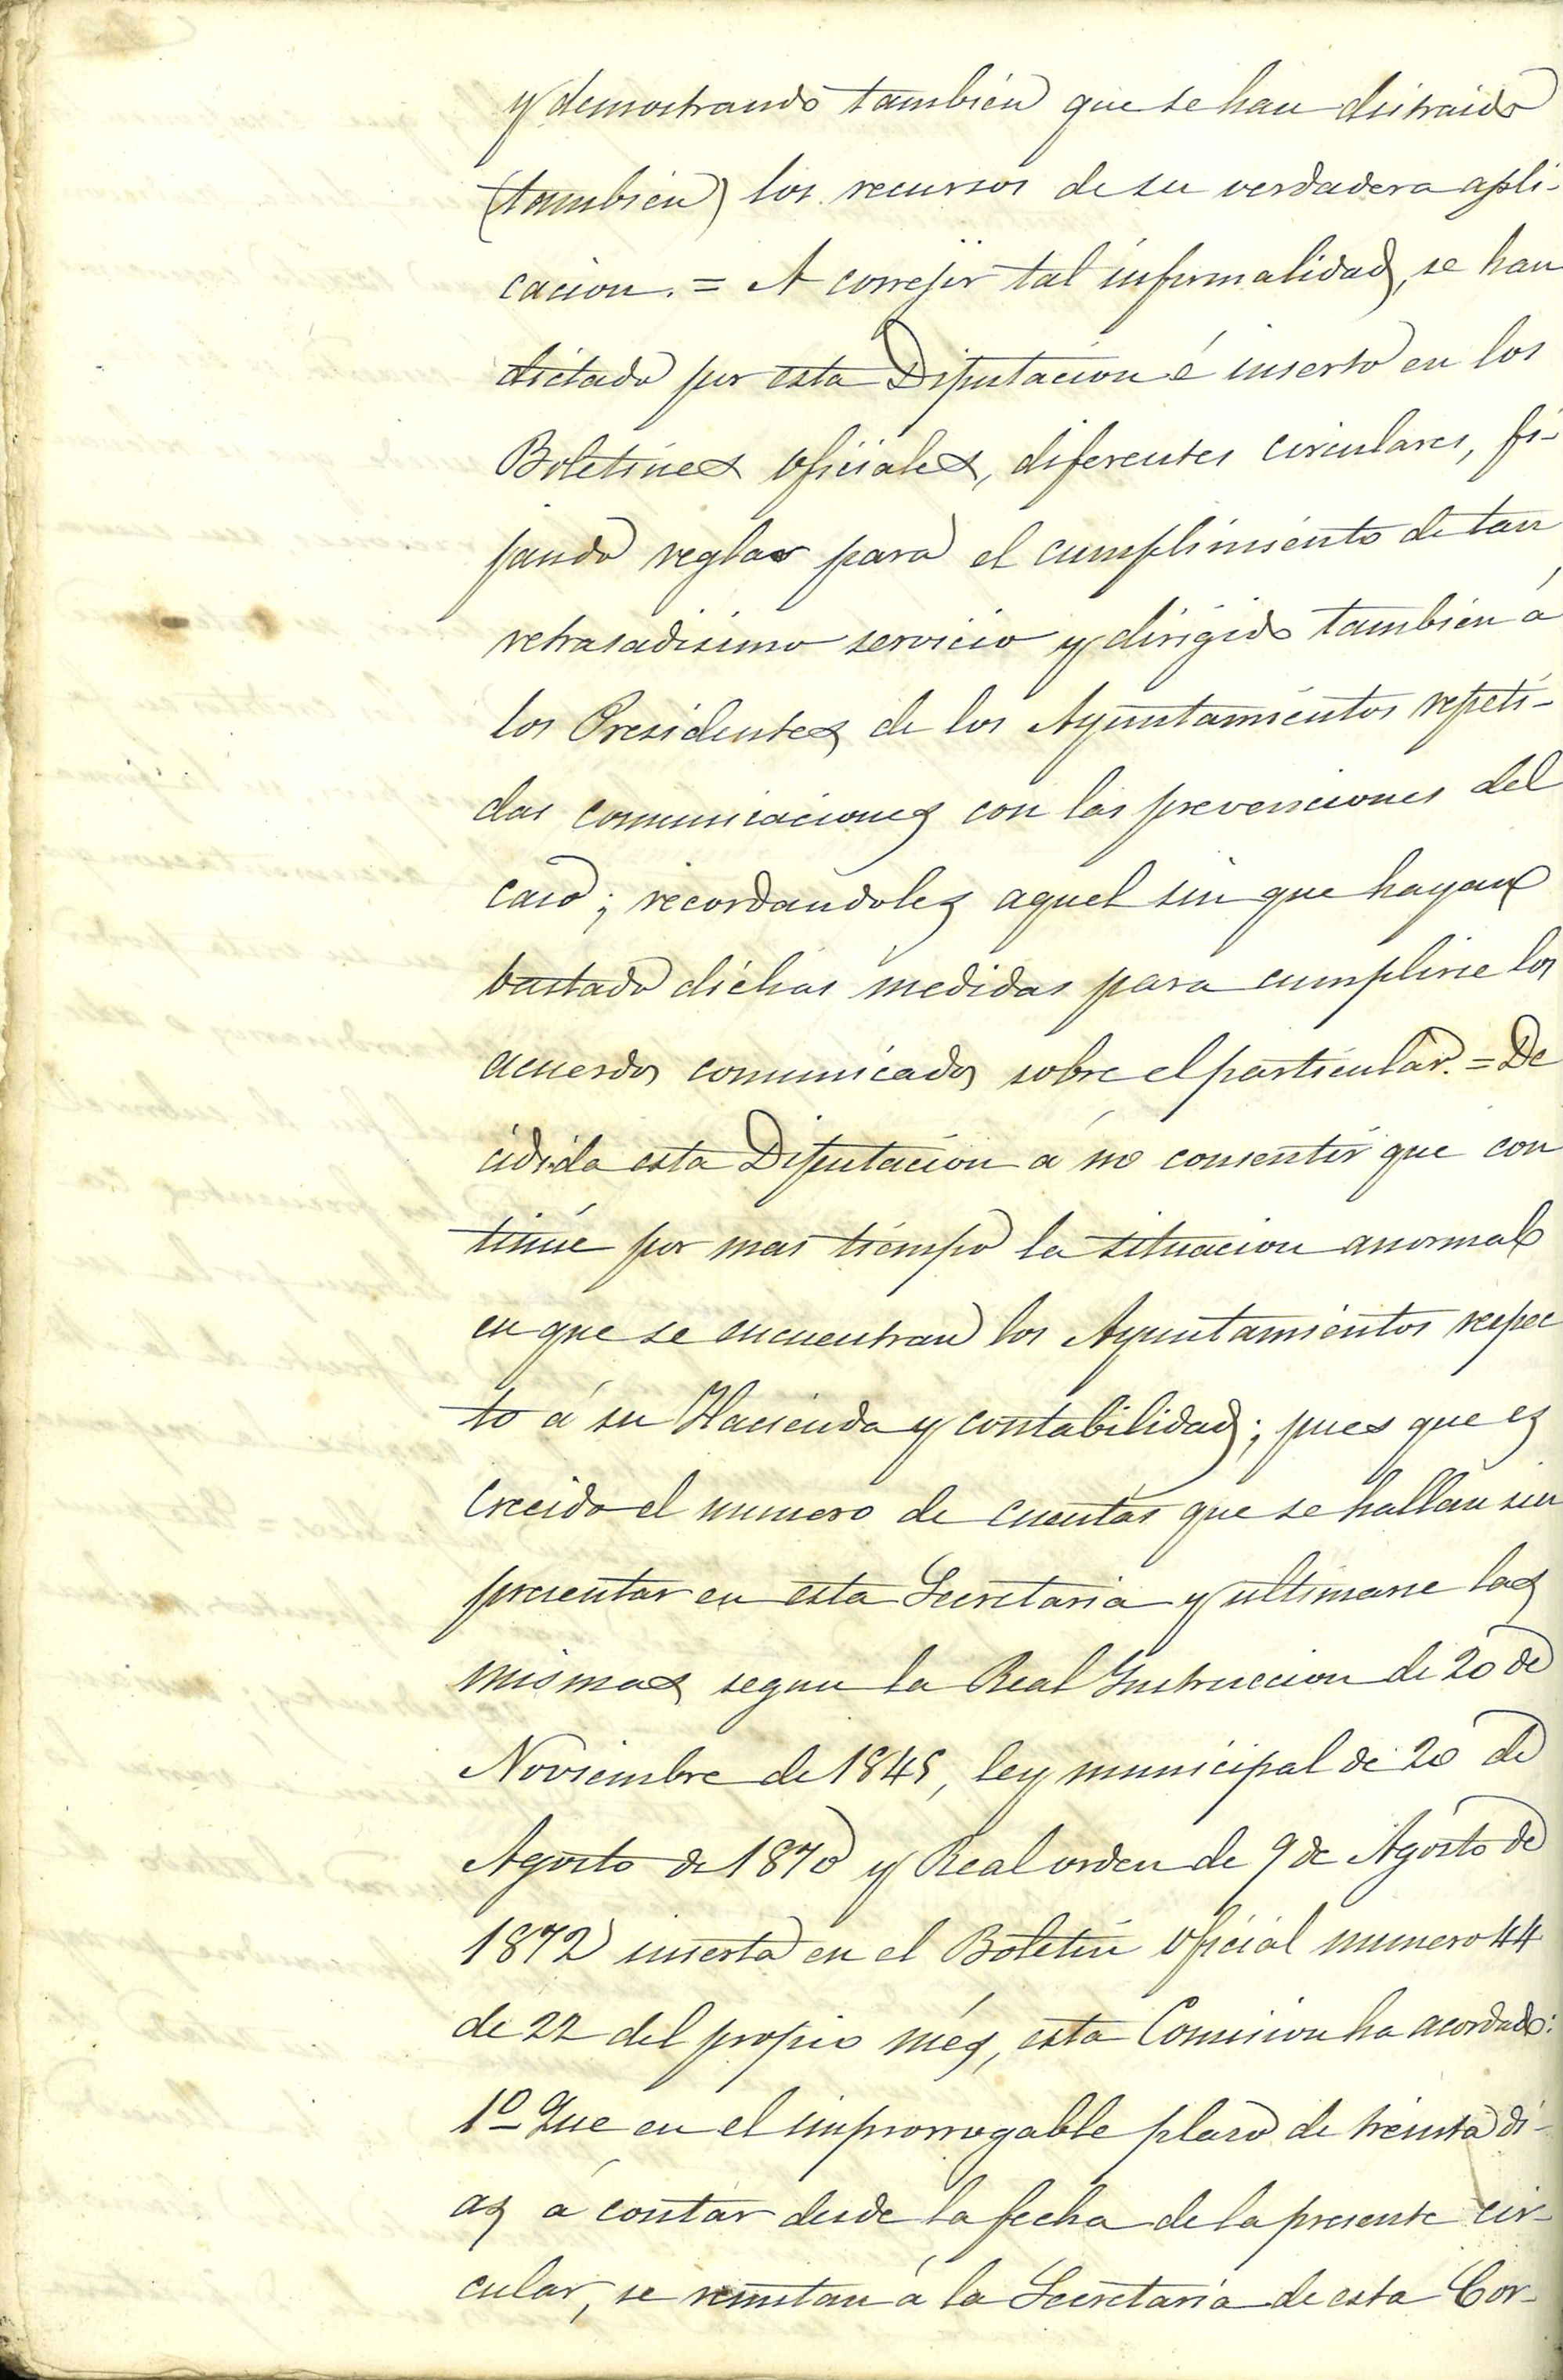 y demostrando también que se han distraido
(tambien) los recursos de su verdadera apli-
cacion. = A correjir tal informalidad, se han
dictado por esta Diputacion é inserto en los
Boletines oficiales, diferentes circulares, fi-
jando reglas para el cumplimiento de tan
retrasadisimo servicio y dirigido tambien á
los Presidentes de los Ayuntamientos repeti-
das comunicaciones con las prevenciones del
caso; recordandoles aquel sin que hayan
bastado dichas medidas para cumplirse los
acuerdos comunicados sobre el particular. = De
cidida esta Diputacion á no consentir que con
tinúe por mas tiempo la situacion anormal
en que se encuentran los Ayuntamientos respec
to á su Hacienda y contabilidad; pues que es
crecido el numero de cuentas que se hallan sin
presentar en esta Secretaria y ultimarse las
mismas segun la Real Instruccion de 20 de
Noviembre de 1845, ley municipal de 20 de
Agosto de 1870 y Real orden de 9 de Agosto de
1872 inserta en el Boletin oficial numero 44
de 22 del propio més, esta Comision ha acordado:
1º Que en el improrrogable plaso de treinta di-
as á contar desde la fecha de la presente cir-
cular, se remitan á la Secretaria de esta Cor-